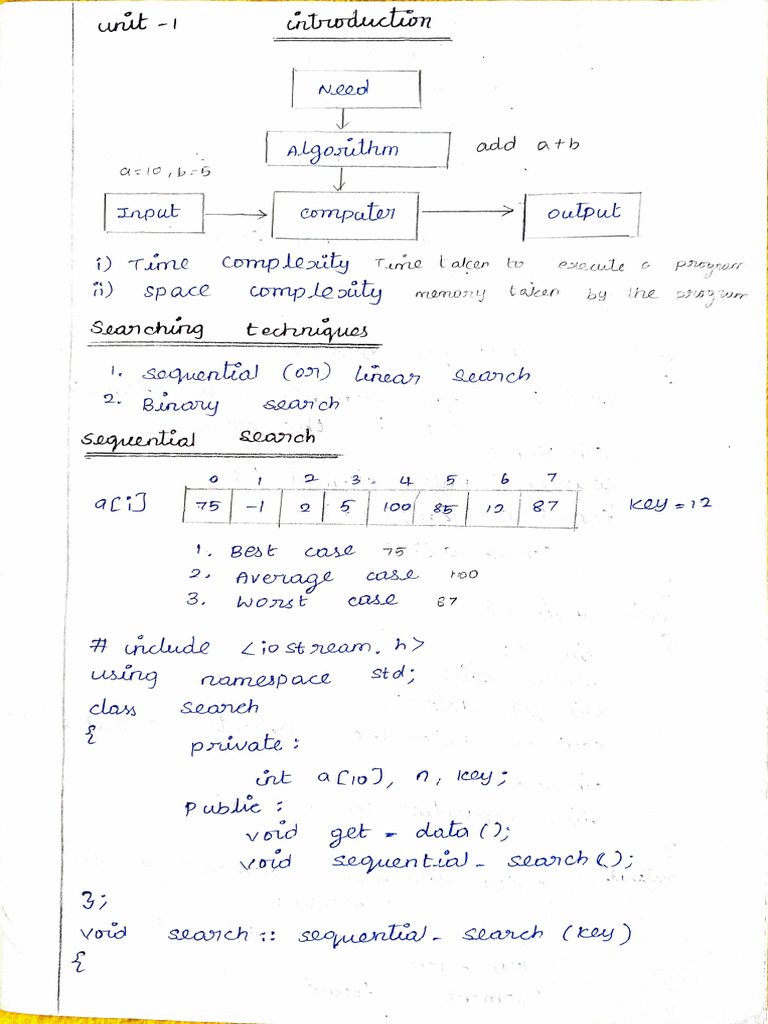 unit -1 introduction
Need
Algorithm add a+b
a=10, b=5
Input computer output
i) Time complexity Time taken to execute a program
ii) space complexity memory taken by the program
Searching techniques
1. sequential (or) linear search
2. Binary search
sequential search
0 1 2 3 4 5 6 7
a[i] 75 -1 2 5 100 85 12 87 key = 12
1. Best case 75
2. Average case 100
3. Worst case 87
# include <iostream.h>
using namespace std;
class search
{
private :
int a[10], n, key;
public :
void get - data ();
void sequential - search ();
};
void search :: sequential - search (key)
{